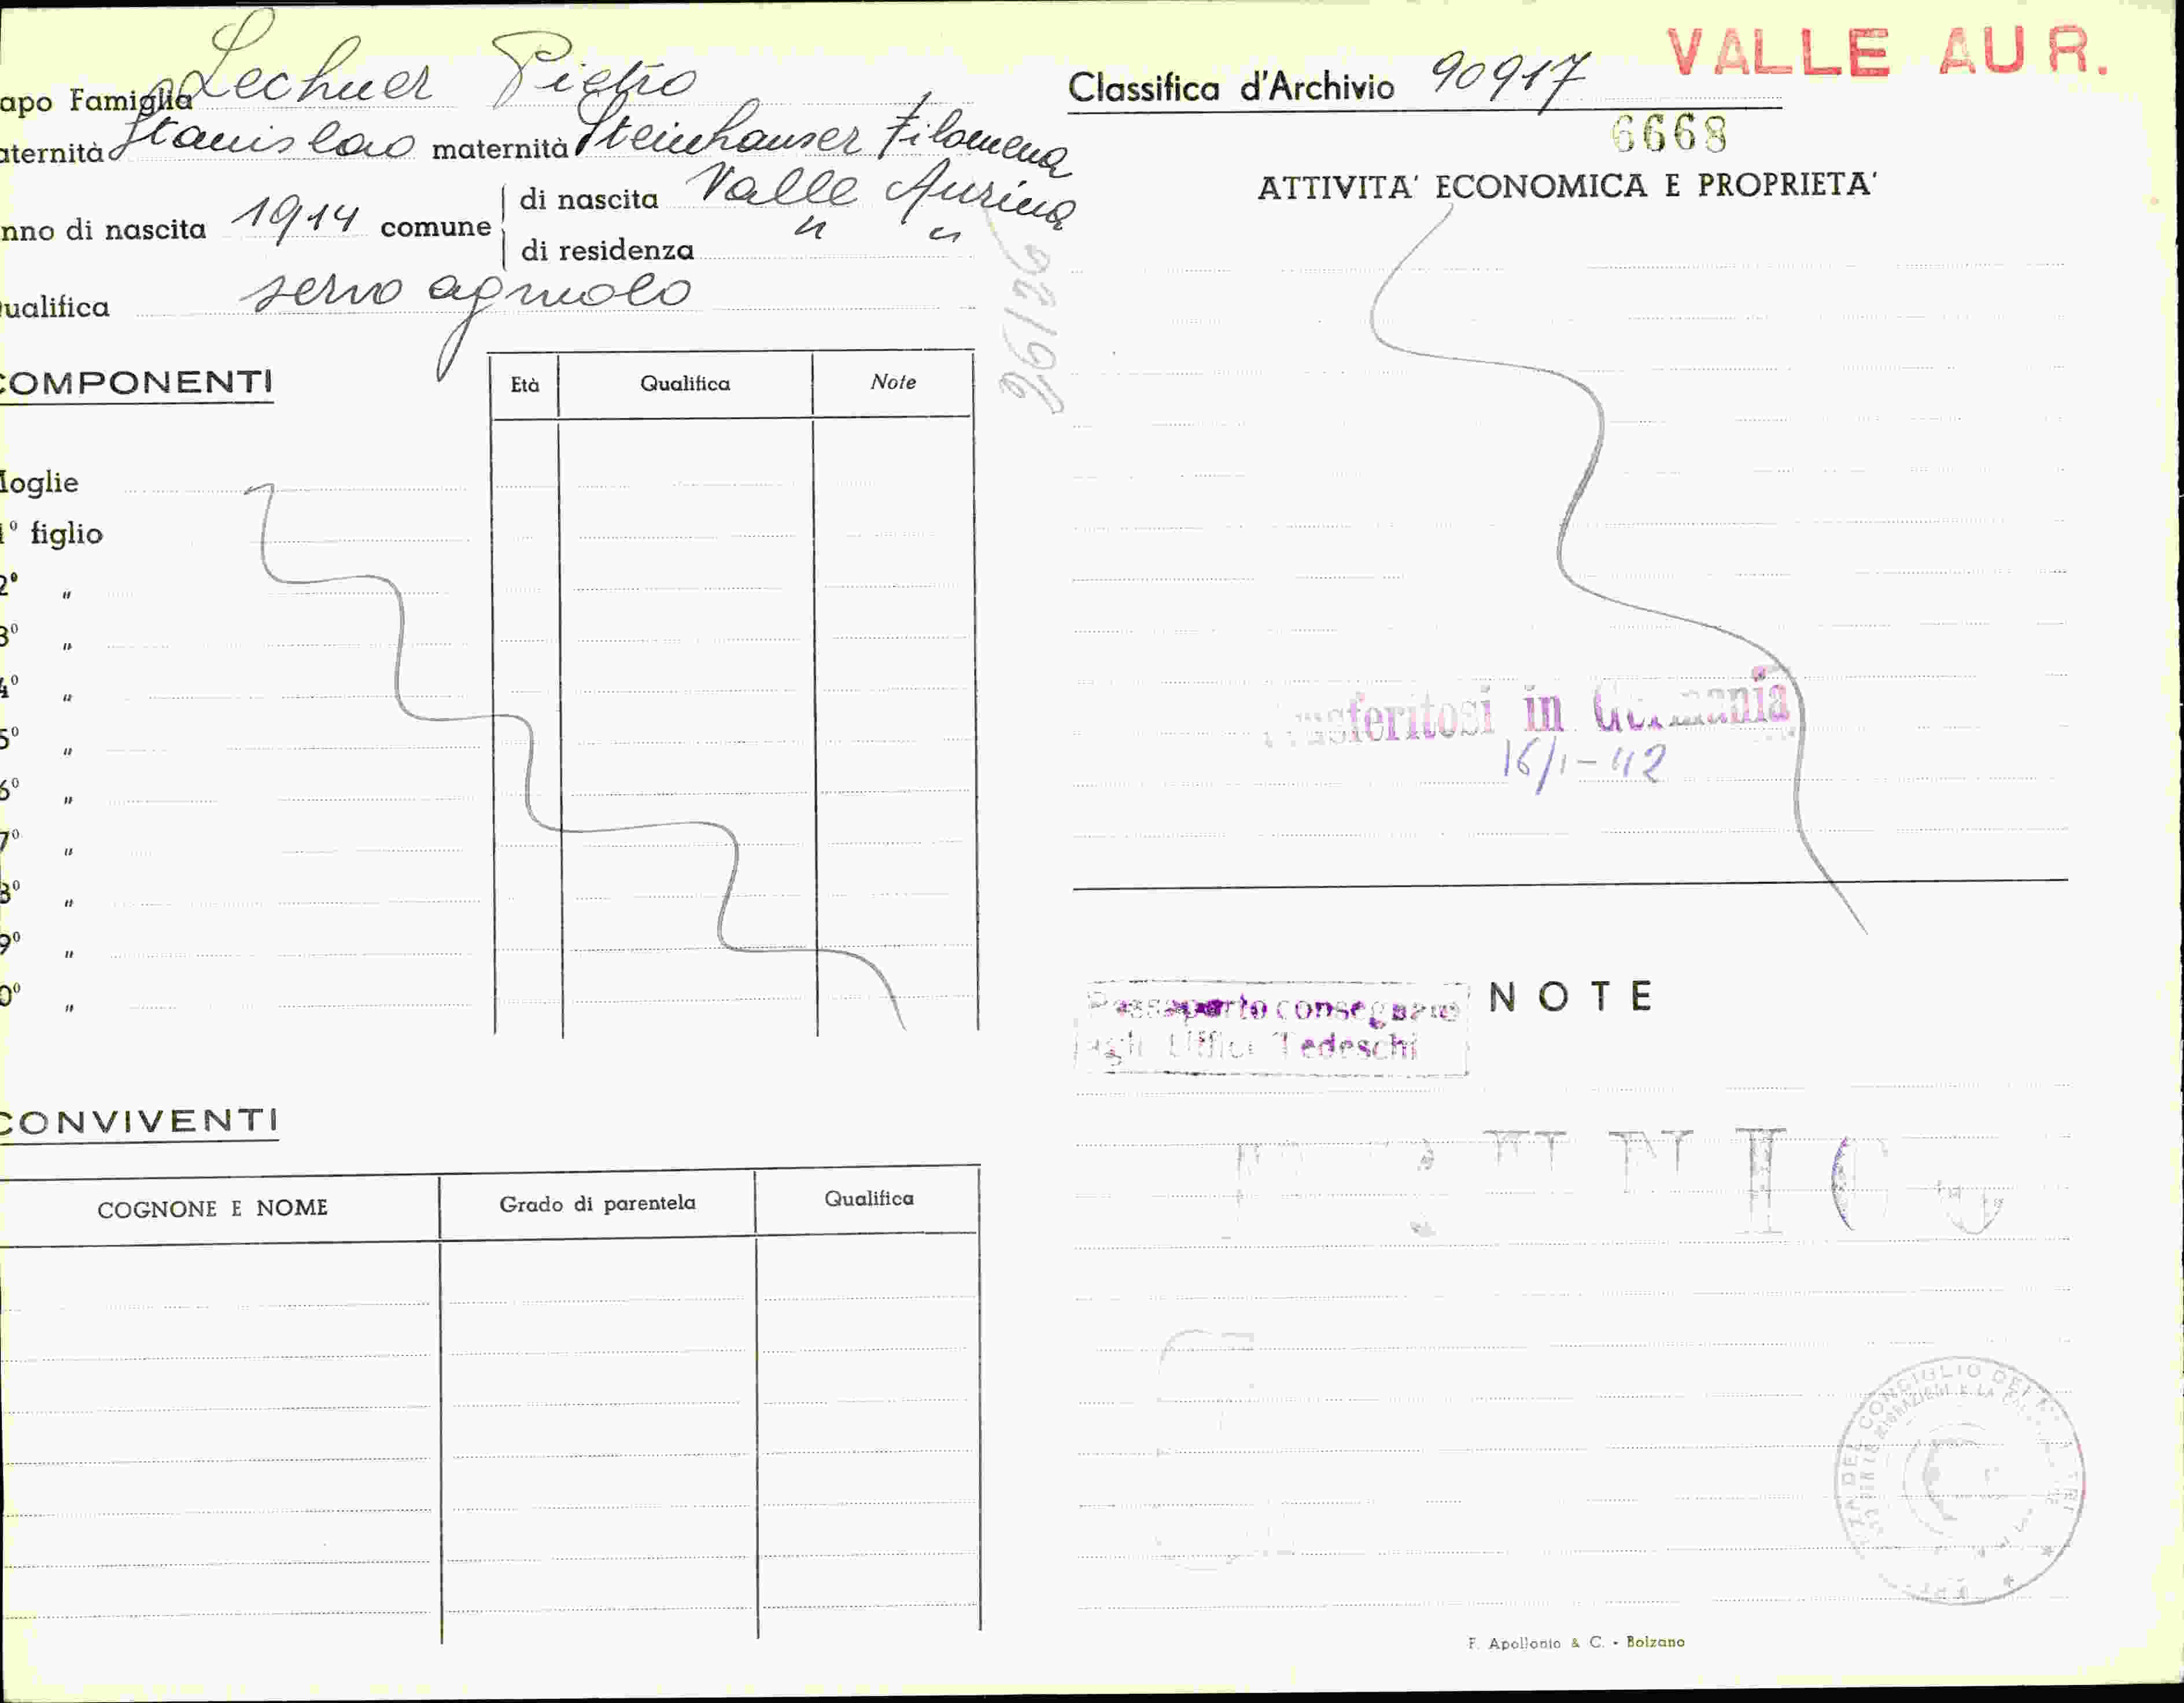 apo Famiglia Lechner Pietro
aternità Stanislao maternità Steinhauser Filomena
nno di nascita 1914 comune di nascita Valle Aurina
di residenza " "
ualifica servo agricolo
COMPONENTI
Età Qualifica Note
Moglie
1° figlio
2° "
3° "
4° "
5° "
6° "
7° "
8° "
9° "
0° "
CONVIVENTI
COGNONE E NOME Grado di parentela Qualifica
VALLE AUR.
Classifica d'Archivio 90917
6668
ATTIVITA' ECONOMICA E PROPRIETA'
Trasferitosi in Germania
16/1-42
NOTE
Passaporto consegnato
agli Uffici Tedeschi
F. Apollonio & C. - Bolzano